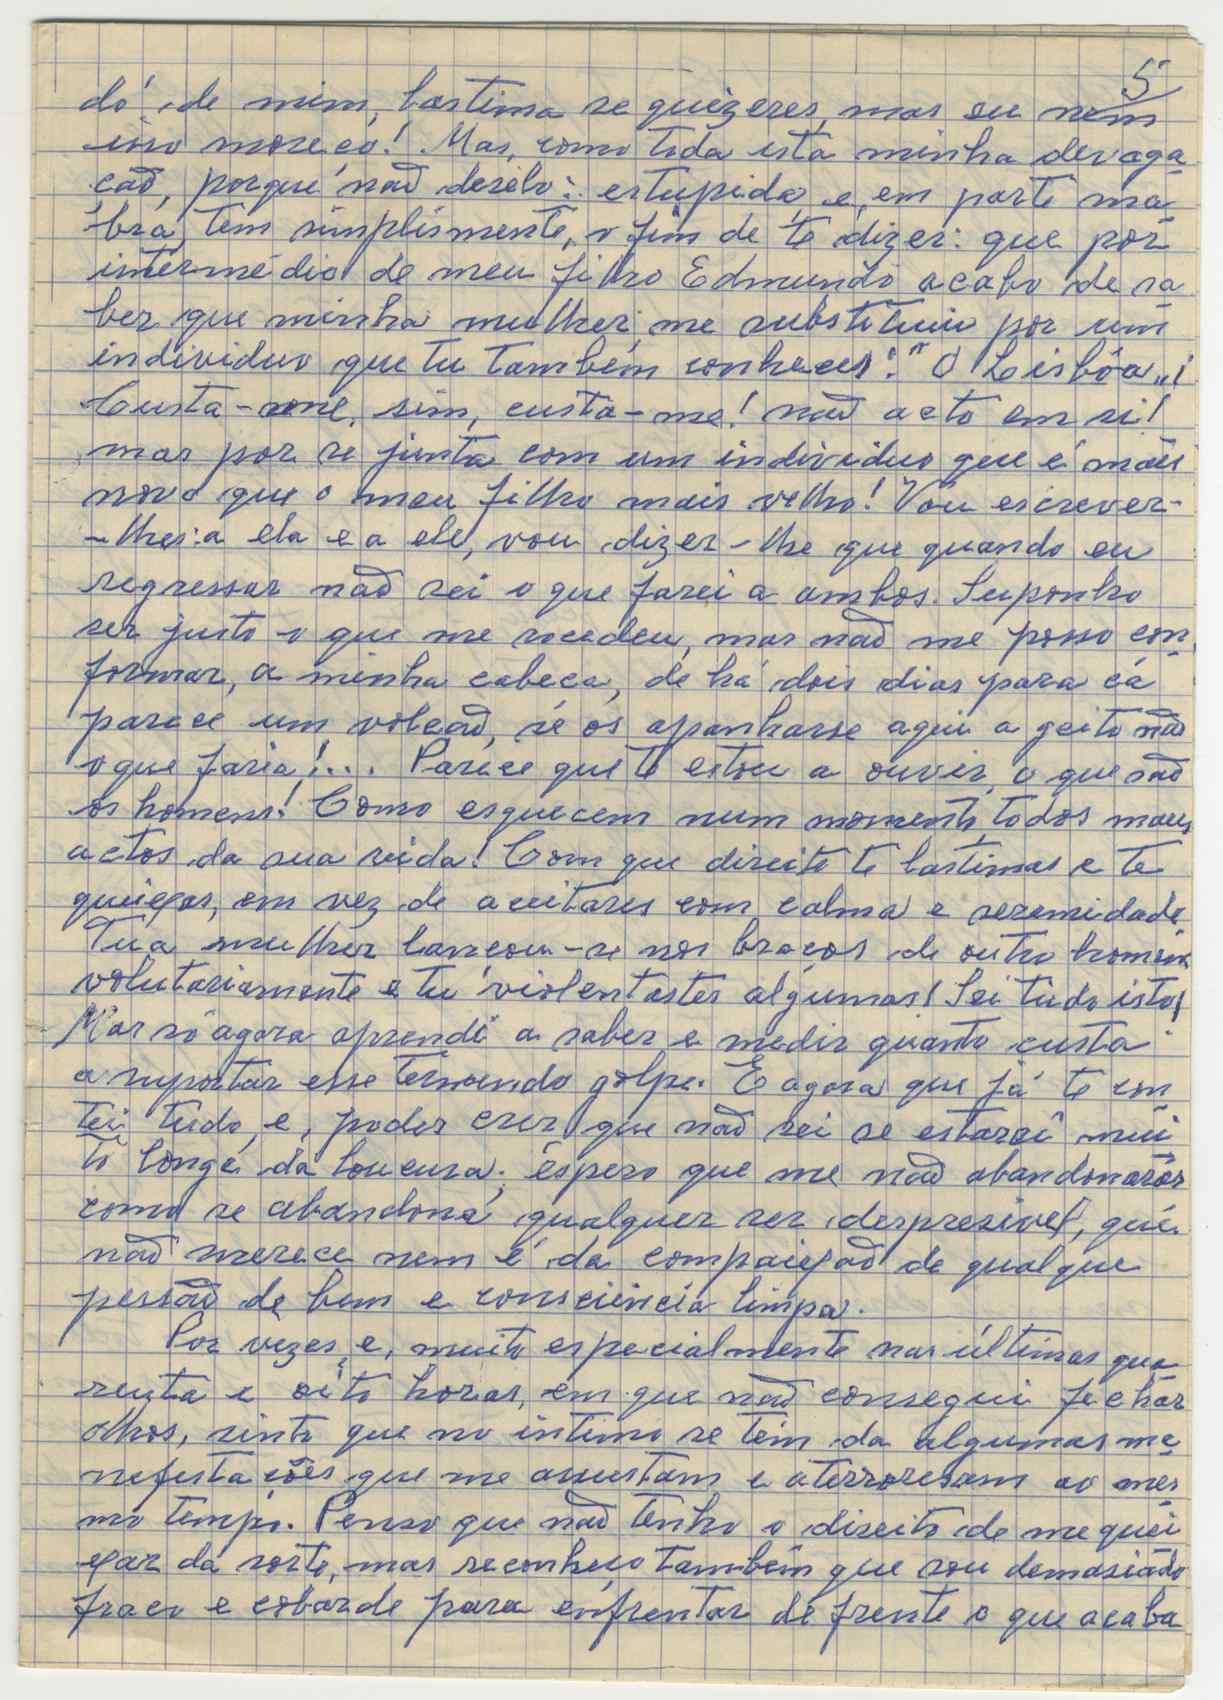 5
dó de mim, lastima se quizeres, mas eu nem
isso mereço! Mas, como toda esta minha devaga
ção, porque não dizêlo: estupida e, em parte ma
bra, tem simplismente, o fim de te dizer: que por
intermédio de meu filho Edmundo acabo de sa
ber que minha mulher me substituiu por um
individuo que tu também conheces: "O Lisbôa"!
Custa-me, sim, custa-me! não acto em si!
mas por se junta com um individuo que é mais
novo que o meu filho mais velho! Vou escrever-
-lhes: a ela e a ele, vou dizer-lhe que quando eu
regressar não sei o que farei a ambos. Suponho
ser justo o que me sucedeu, mas não me posso con
formar, a minha cabeça, de há dois dias para cá
parece um volcão, se os apanhasse aqui a geito não
o que faria!... Parece que te estou a ouvir, o que são
os homens! Como esquecem num momento, todos maus
actos da sua vida! Com que direito te lastimas e te
queiças, em vez de aceitares com calma e serenidade
Tua mulher lançou-se nos braços de outro homem
volutariamente e tu violentastes algumas! Sei tudo isto!
Mas só agora aprendi a saber e medir quanto custa
a suportar esse tremendo golpe. E agora que já te con
tei tudo, e, podes crer que não sei se estarei mui
to longe da loucura; espero que me não abandonarás
como se abandona qualquer ser despresivel, que
não merece nem é da compaição de qualque
pessoa de bem e consciência limpa.
Por vezes e, muito especialmente nas últimas qua
renta e oito horas, em que não consegui fechar
olhos, sinto que no intimo se tem da algumas ma
nefestações que me assustam e aterrorisam ao mes
mo tempo. Penso que não tenho o direito de me quei
çar da sorte, mas reconheço também que sou demasiado
fraco e cobarde para enfrentar de frente o que acaba